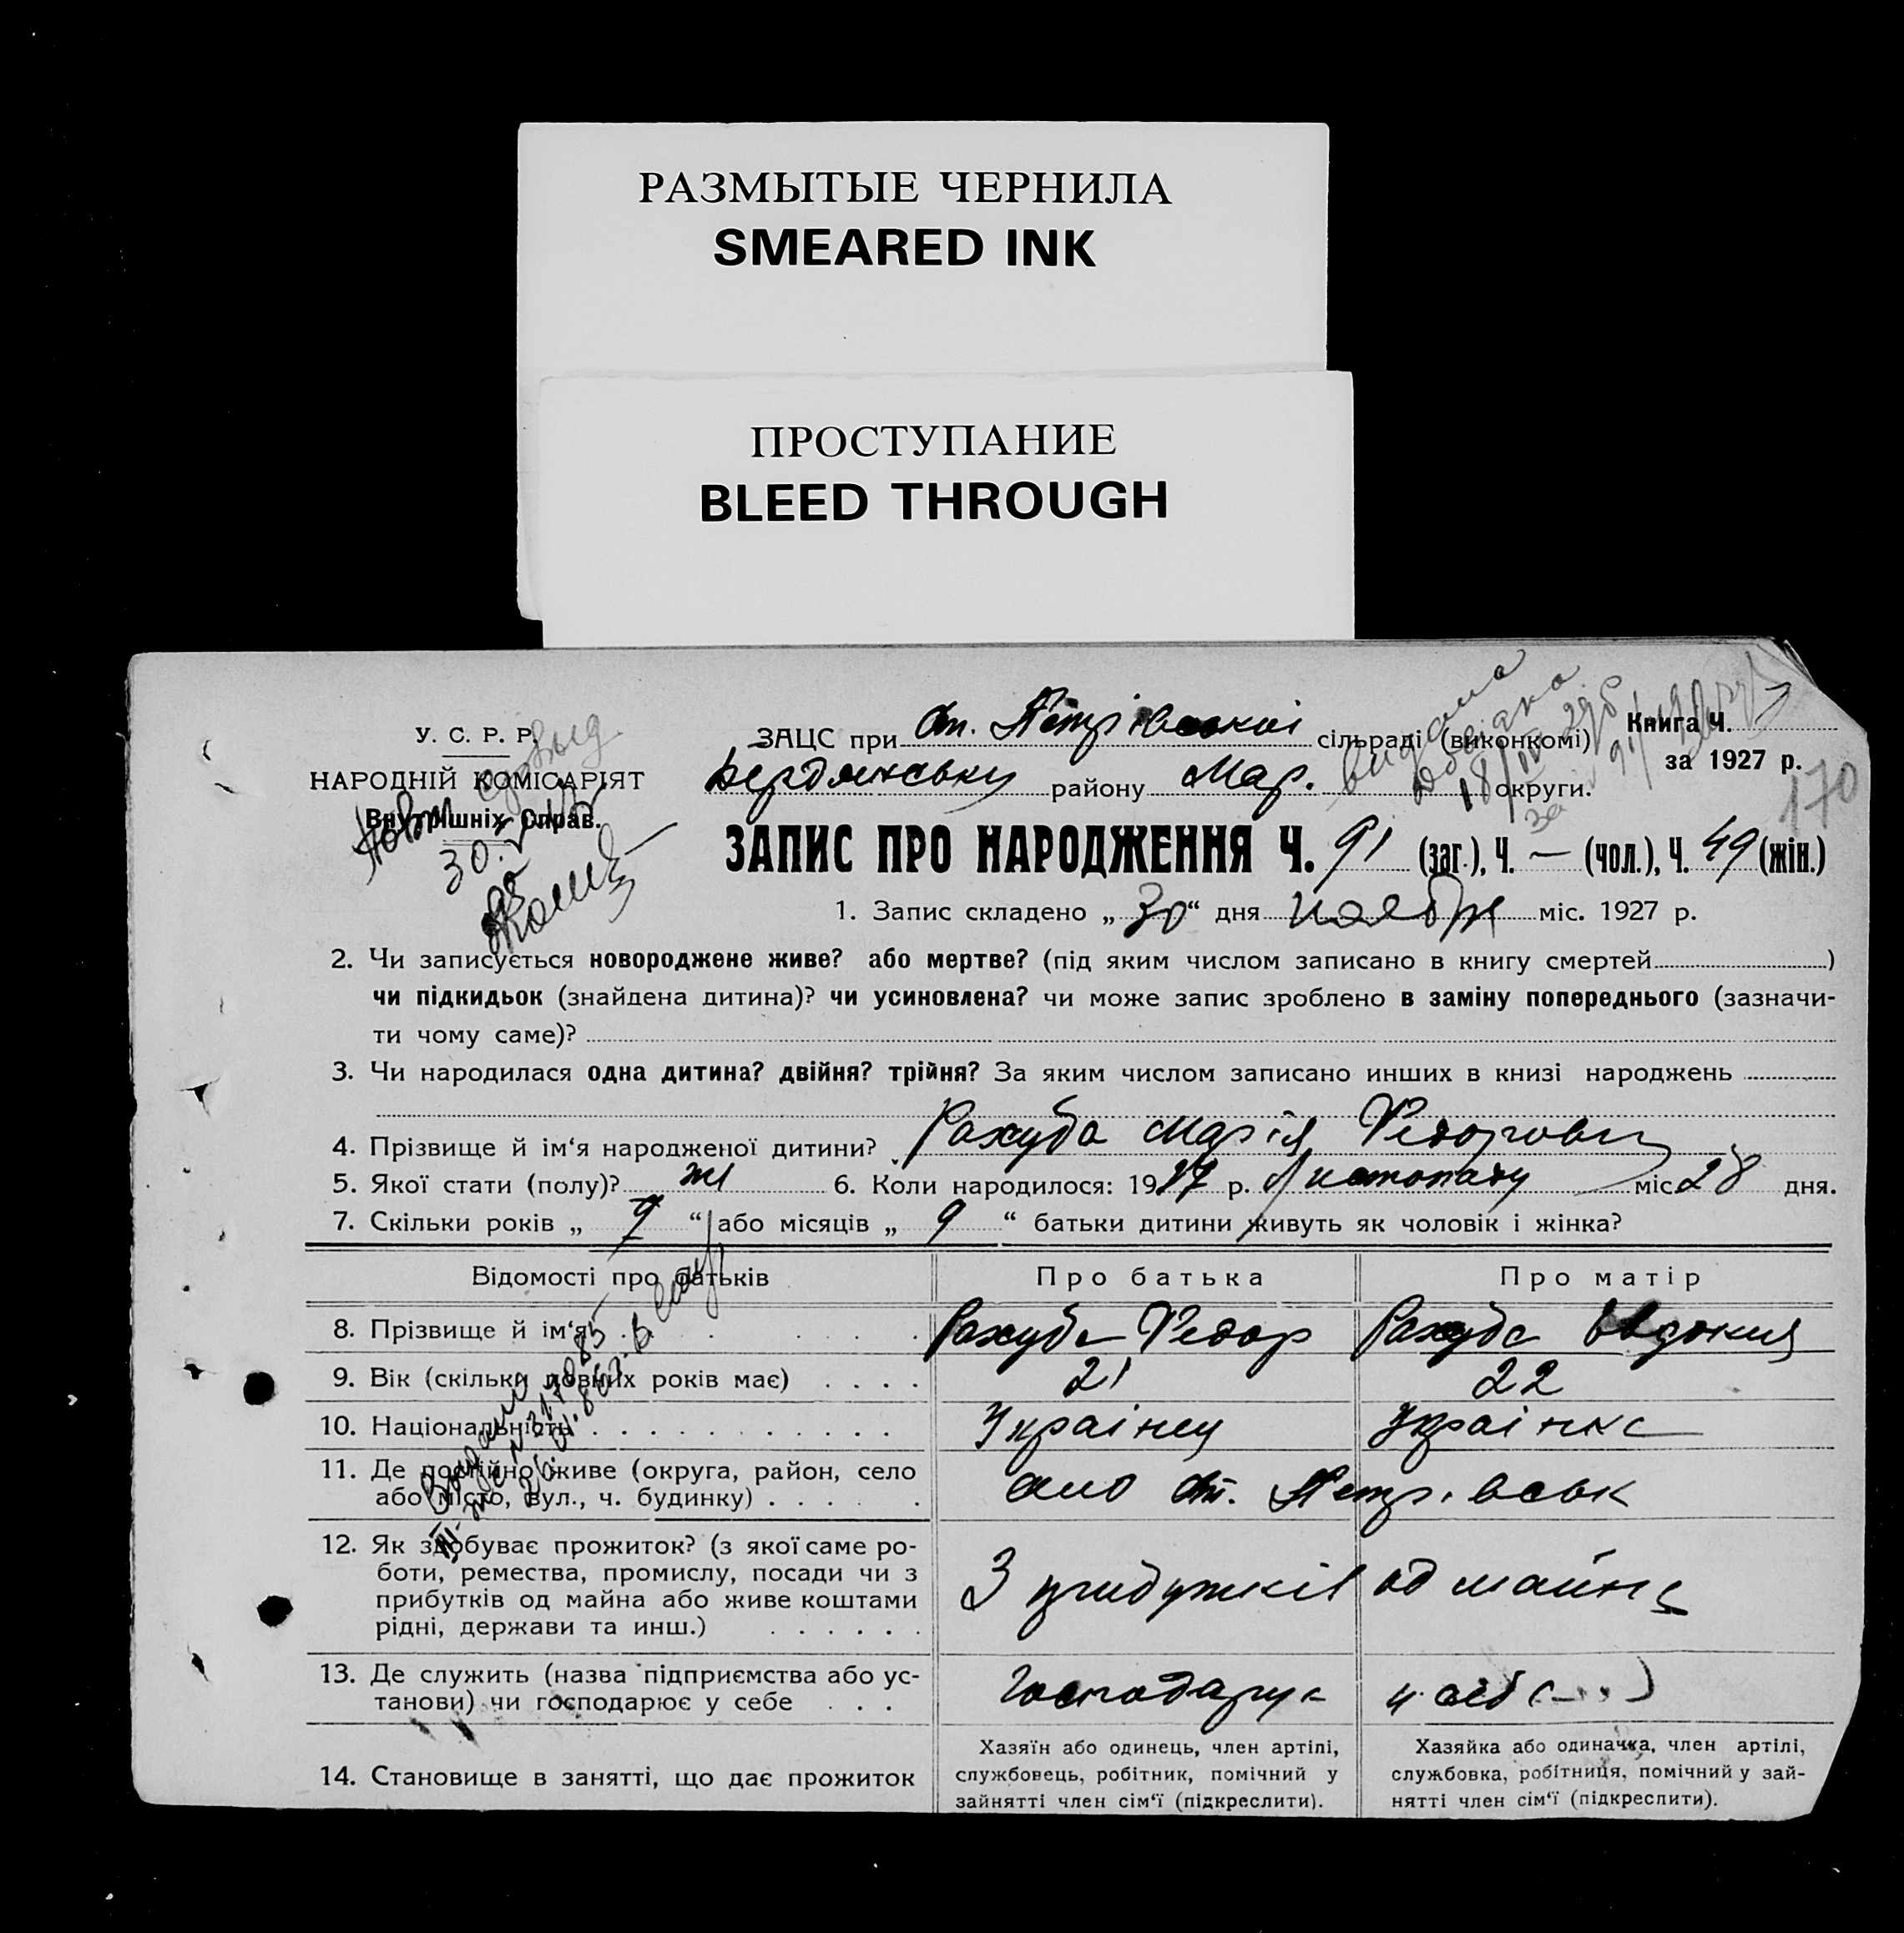 РАЗМЫТЫЕ ЧЕРНИЛА
SMEARED INK
ПРОСТУПАНИЕ
BLEED THROUGH
У. С. Р. Р.
НАРОДНІЙ КОМІСАРІЯТ
Внутрішніх Справ.
ЗАЦС при Петрівській сільраді (виконкомі)
Бердянську району Мар. округи.
видана
18/
Книга Ч.
за 1927 р.
170
30.
ЗАПИС ПРО НАРОДЖЕННЯ Ч. 91 (заг.), Ч. — (чол.), Ч. 49 (жін.)
1. Запис складено „ 30 “ дня ноября міс. 1927 р.
2. Чи записується новороджене живе? або мертве? (під яким числом записано в книгу смертей )
чи підкидьок (знайдена дитина)? чи усиновлена? чи може запис зроблено в заміну попереднього (зазначи-
ти чому саме)?
3. Чи народилася одна дитина? двійня? трійня? За яким числом записано инших в книзі народжень
4. Прізвище й ім‘я народженої дитини? Рахуба Марія Федоровн
5. Якої стати (полу)? жі 6. Коли народилося: 1927 р. Листопаду міс. 28 дня.
7. Скільки років „ “ або місяців „ 9 “ батьки дитини живуть як чоловік і жінка?
Відомості про батьків Про батька Про матір
8. Прізвище й ім‘я Рахуба Федор Рахуба Евдокия
9. Вік (скільки повних років має) 21 22
10. Національність Українец Українка
11. Де постійно живе (округа, район, село
або місто, вул., ч. будинку) село Петрівськ
12. Як здобуває прожиток? (з якої саме ро-
боти, ремества, промислу, посади чи з
прибутків од майна або живе коштами
рідні, держави та инш.) З прибутків од майна
13. Де служить (назва підприємства або ус-
танови) чи господарює у себе Господарує у себе
14. Становище в занятті, що дає прожиток
Хазяїн або одинець, член артілі,
службовець, робітник, помічний у
зайнятті член сім‘ї (підкреслити).
Хазяйка або одиначка, член артілі,
службовка, робітниця, помічний у зай-
нятті член сім‘ї (підкреслити).